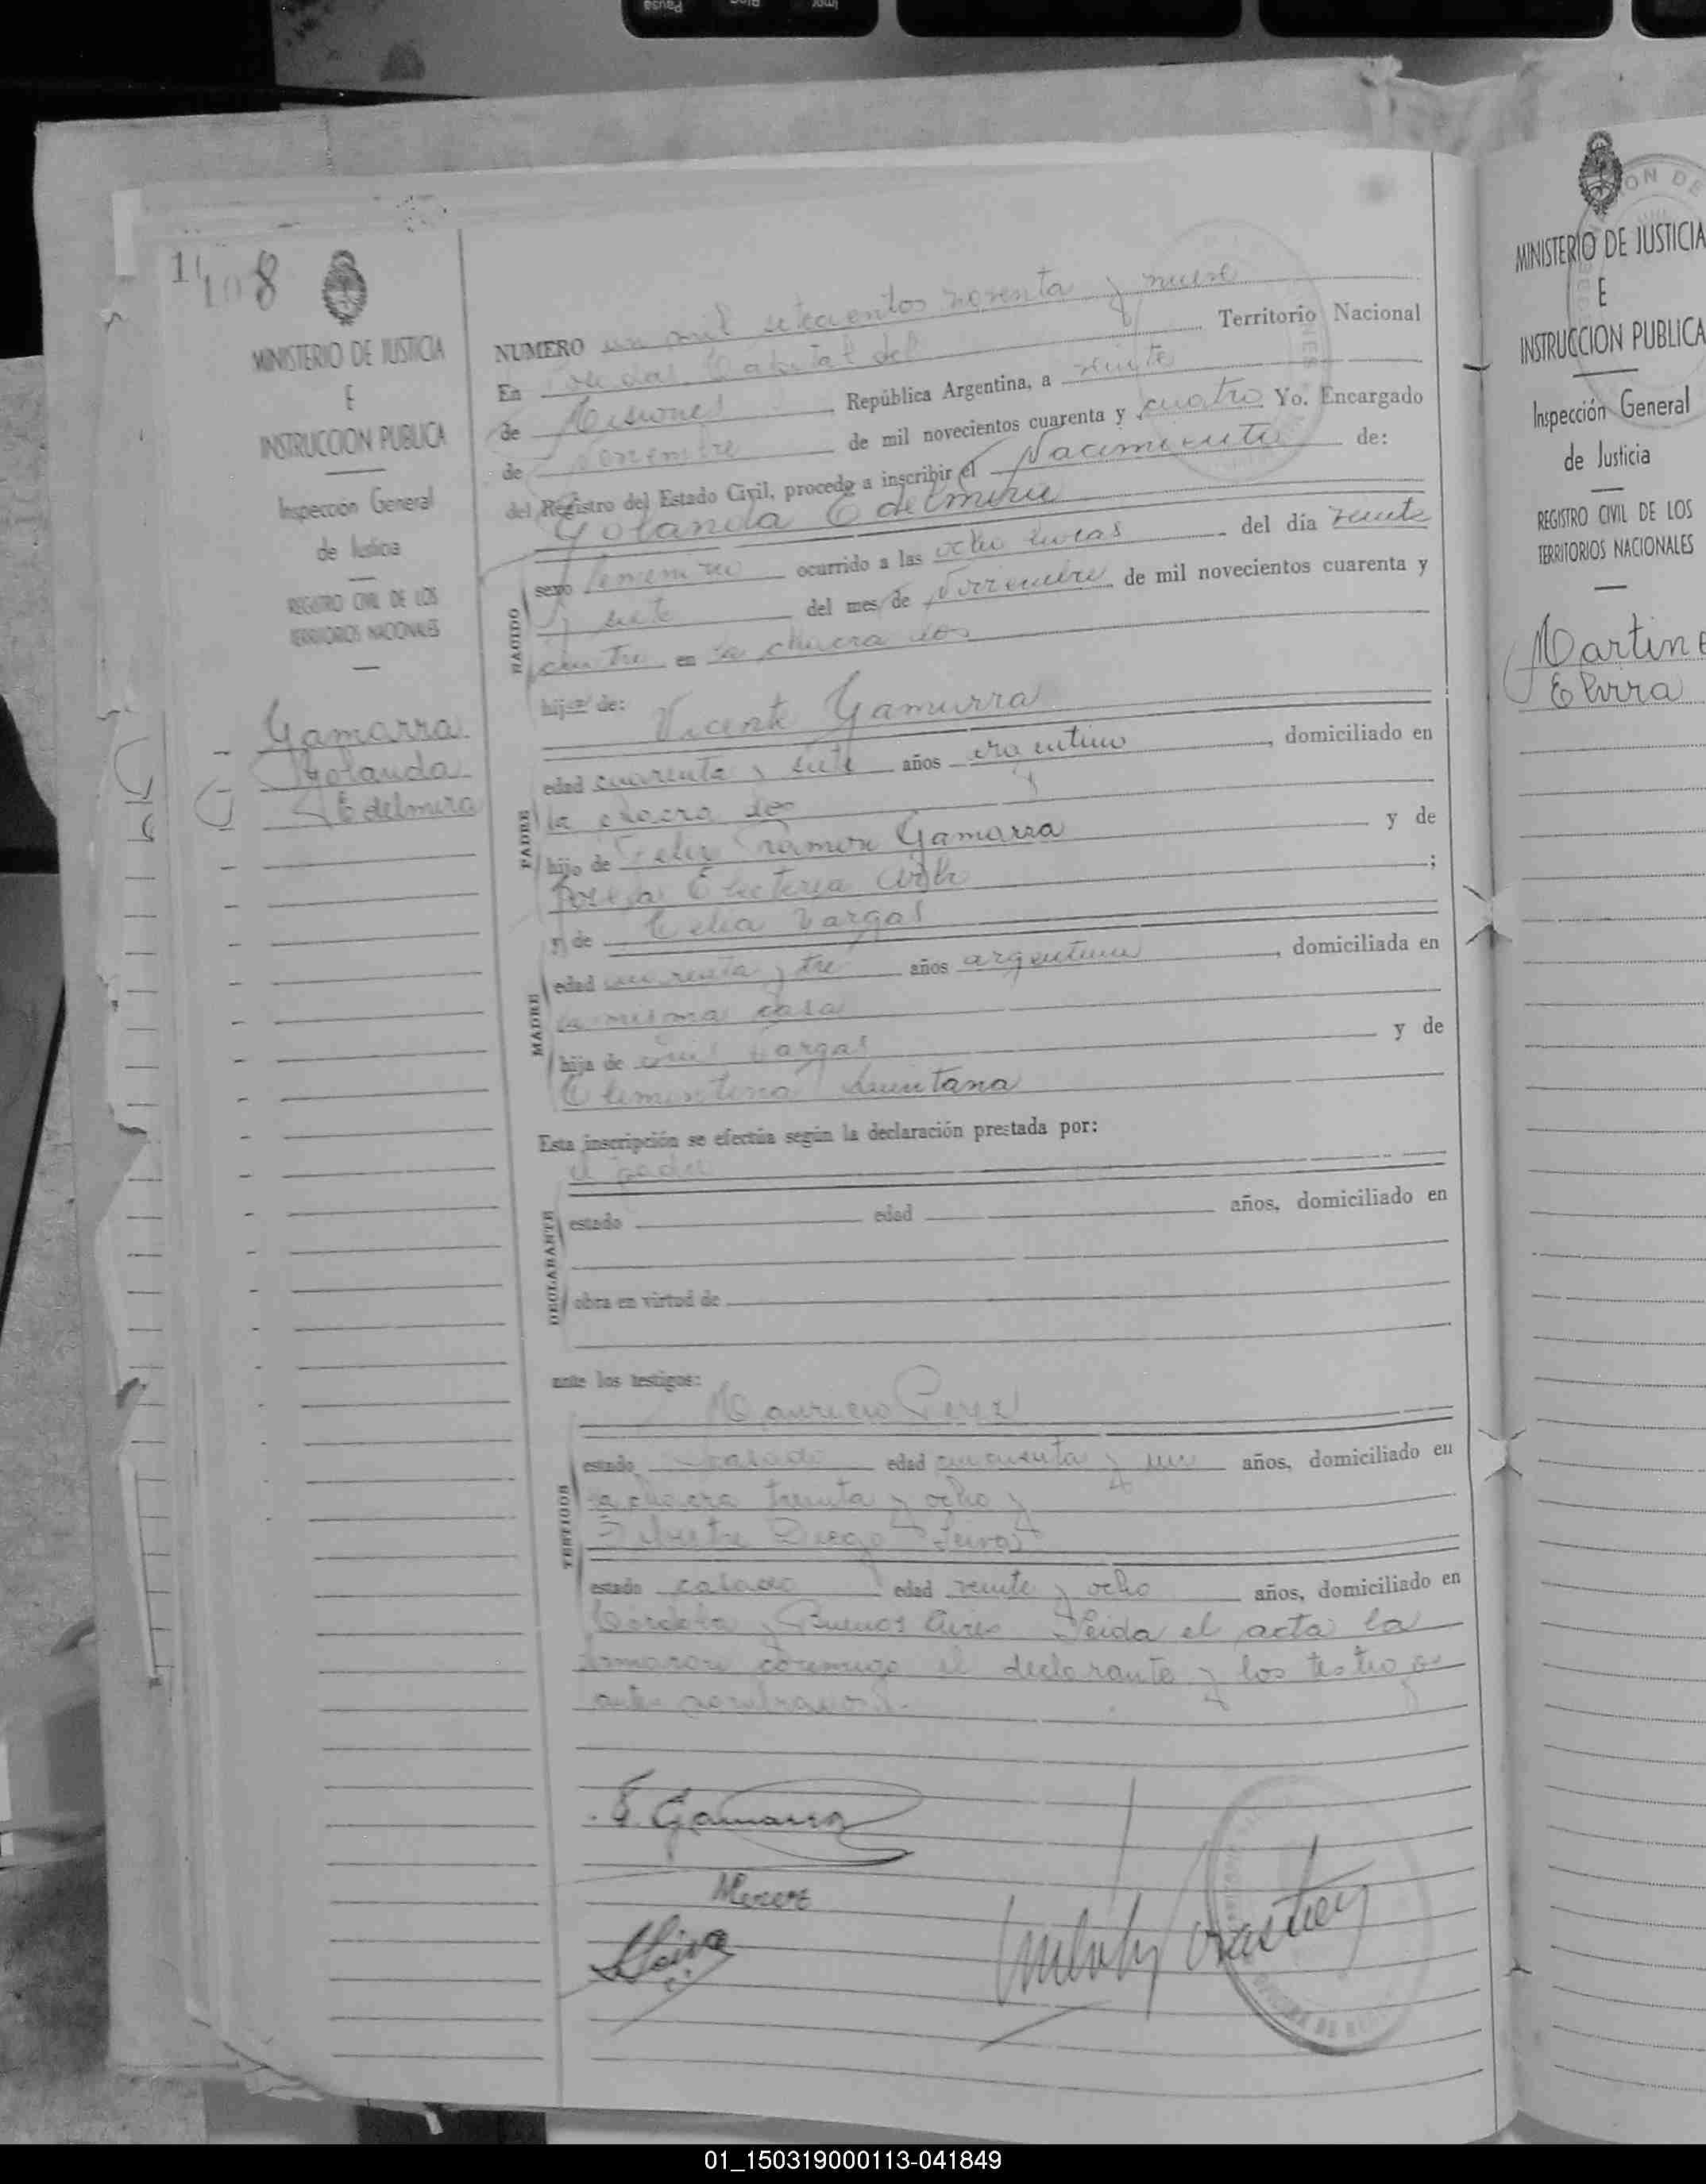 Pausa
108
MINISTERIO DE JUSTICIA
E
INSTRUCCION PUBLICA
Inspección General
de Justicia
REGISTRO CIVIL DE LOS
TERRITORIOS NACIONALES
Gamarra
Yolanda
Edelmira
NUMERO un mil setecientos noventa y nueve
En Posadas Capital del Territorio Nacional
de Misiones República Argentina, a veinte
de Noviembre de mil novecientos cuarenta y cuatro Yo. Encargado
del Registro del Estado Civil, procedo a inscribir el Nacimiento de:
Yolanda Edelmira
NACIDO
sexo femenino ocurrido a las ocho horas del día veinte
y siete del mes de Noviembre de mil novecientos cuarenta y
cuatro en la chacra dos
hija de: Vicente Gamarra
PADRE
edad cuarenta y siete años argentino, domiciliado en
la chacra dos
hijo de Felix Ramon Gamarra y de
Electeria ;
y de Celia Vargas
MADRE
edad y tres años argentina, domiciliada en
la misma casa
hija de Luis Vargas y de
Clementina Quintana
Esta inscripción se efectúa según la declaración prestada por:
el padre
DECLARANTE
estado edad años, domiciliado en
obra en virtud de
ante los testigos:
Mauricio Perez
TESTIGOS
estado casado edad cincuenta y un años, domiciliado en
la chacra treinta y ocho y
Silvestre Diego Leiva
estado casado edad veinte y ocho años, domiciliado en
Córdoba y Buenos Aires Leida el acta la
firmaron conmigo el declarante y los testigos
antes nombrados.-
Gamarra
MPerez
Leiva
MINISTERIO DE JUSTICIA
E
INSTRUCCION PUBLICA
Inspección General
de Justicia
REGISTRO CIVIL DE LOS
TERRITORIOS NACIONALES
Martin
Elvira
01_150319000113-041849